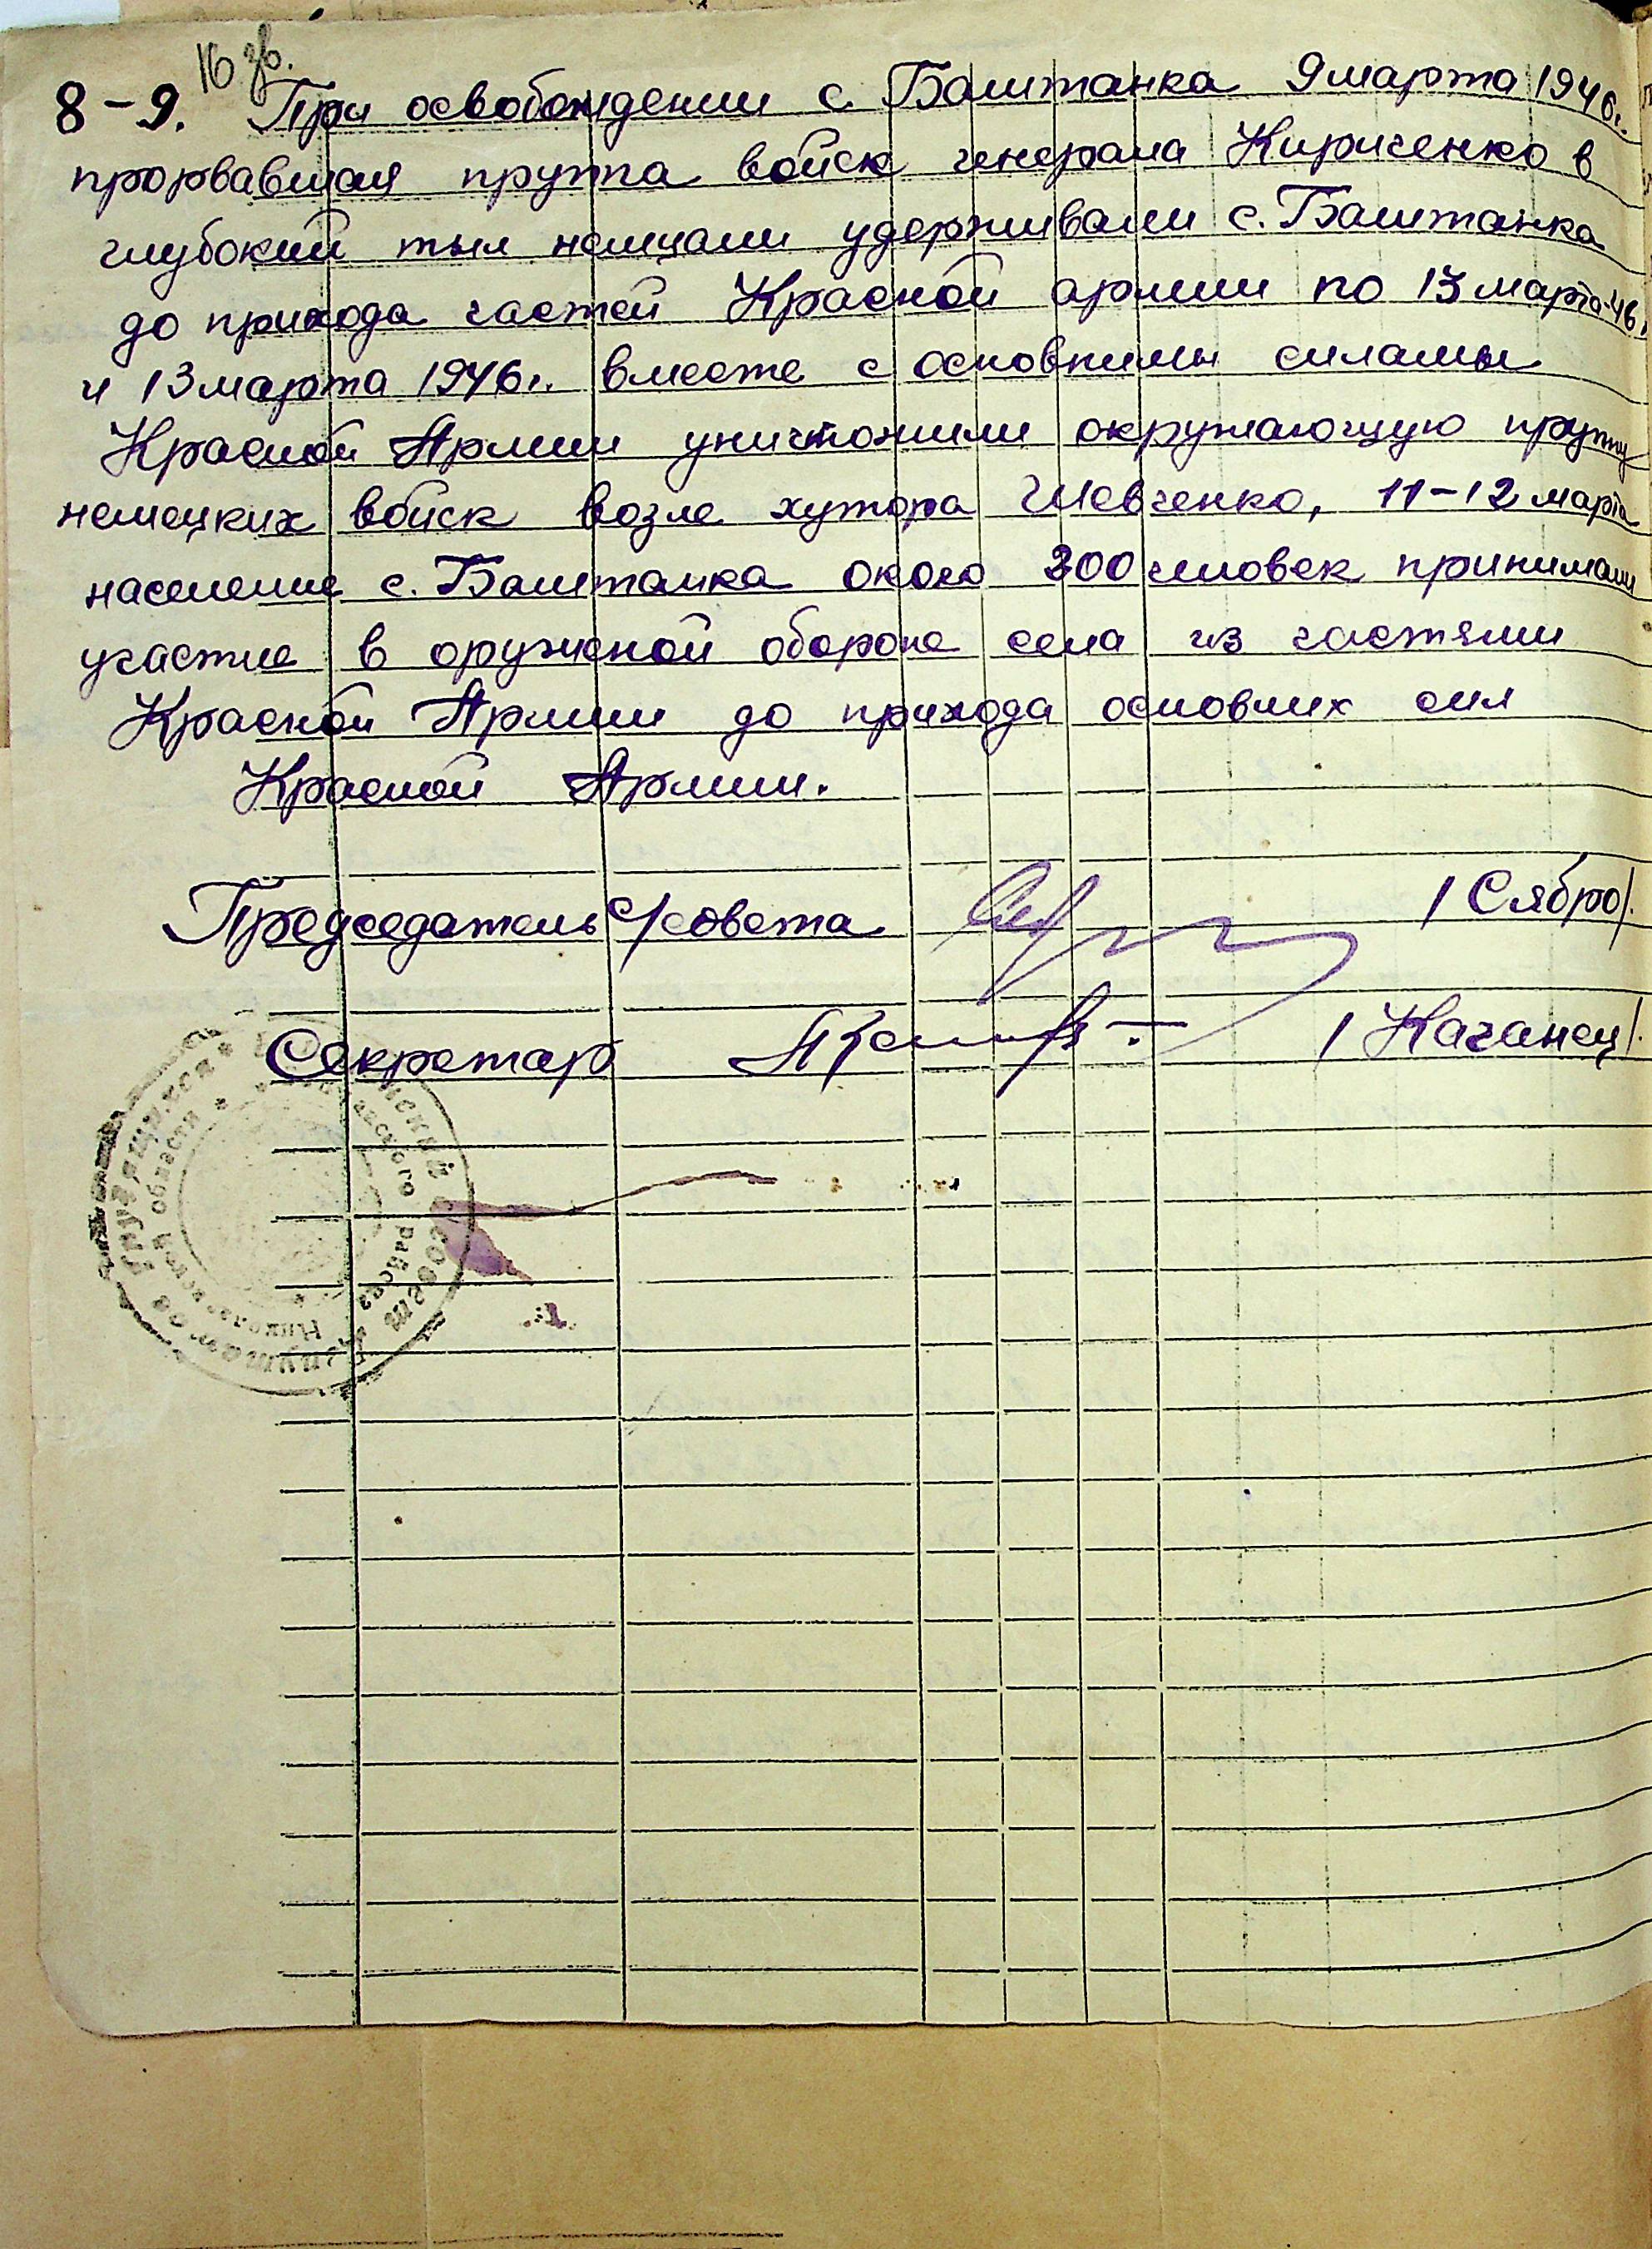 16 зв.
8-9. При освобождении с. Баштанка 9 марта 1946г.
прорвавшая группа войск генерала Кириченко в
глубокий тыл немцами удерживали с. Баштанка
до прихода частей Красной армии по 13 марта 46г.
и 13 марта 1946г. вместе с основними силамы
Красной Армии уничтожили окружающую группу
немецких войск возле хутора Шевченко, 11-12 марта
население с. Баштанка около 200 человек принимали
участие в оружной обороне села из частями
Красной Армии до прихода основних сил
Красной Армии.
Председатель С/совета /Сябро/.
Секретар /Качанец/.
трудящихся
области
района